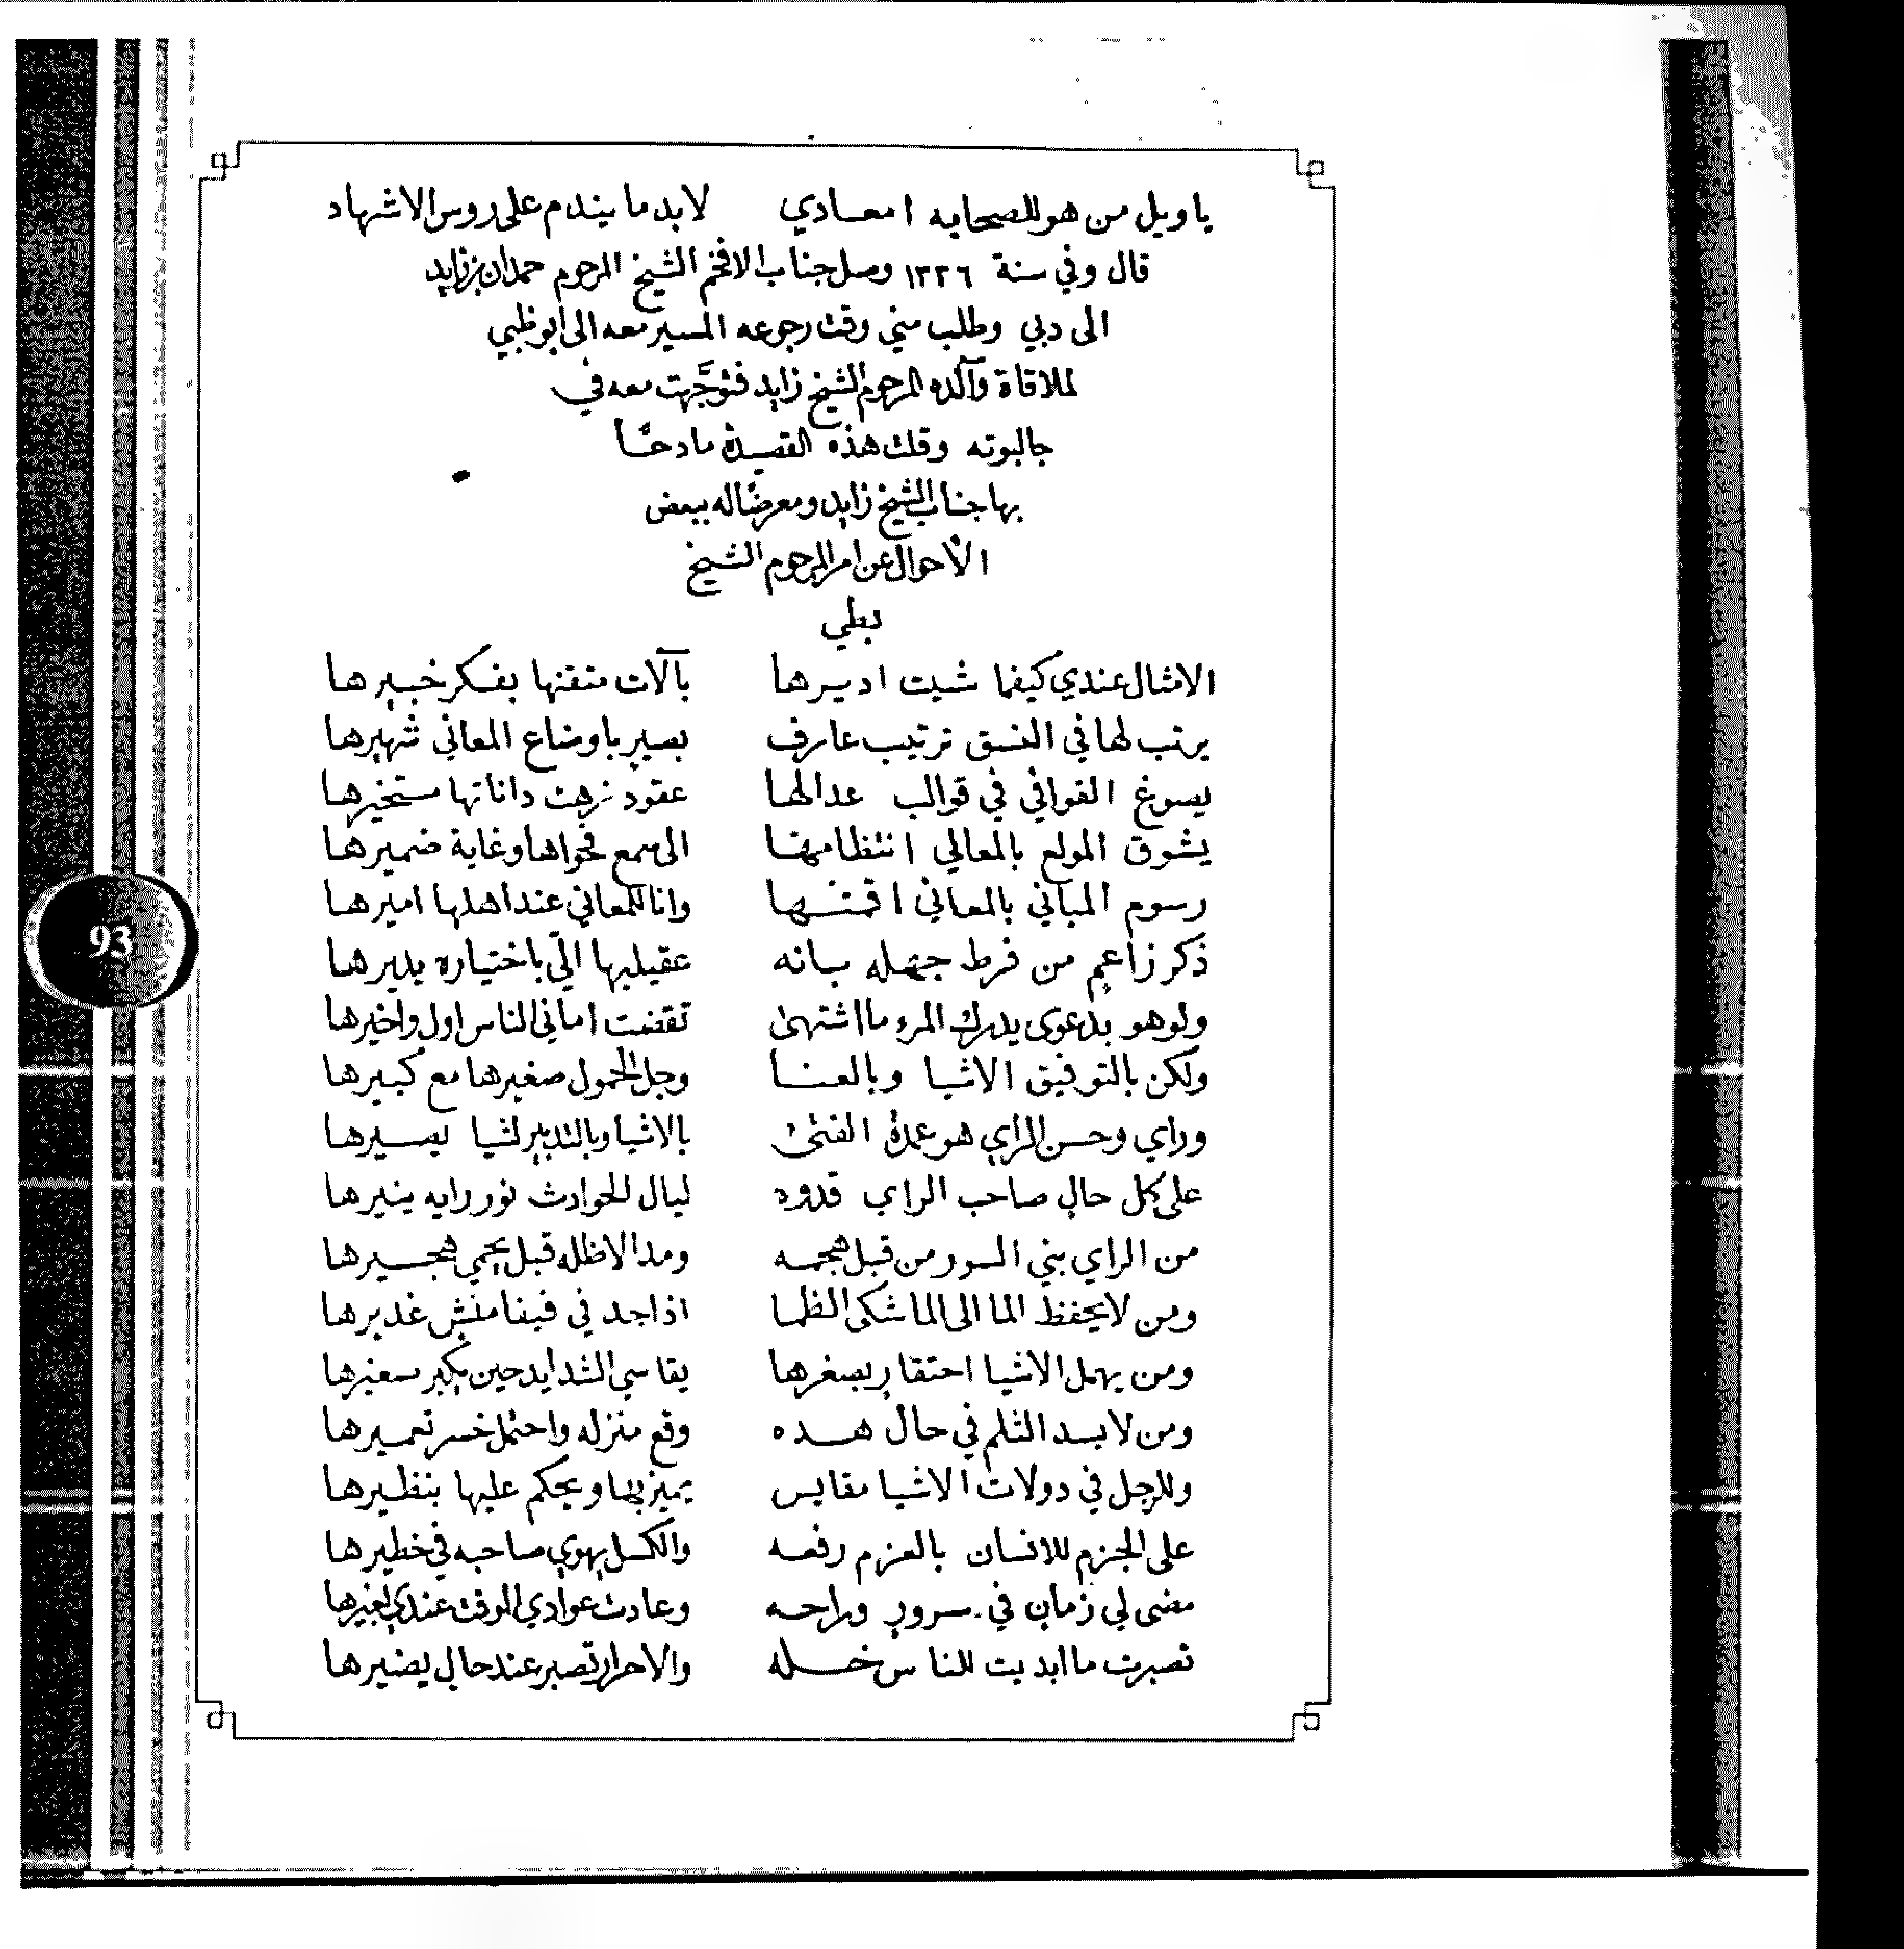 يا ويل من هو للصحابه امعادي لا بد ما يندم على روس الاشهاد
قال وفي سنة ١٣٢٦ وصل جناب الافخم الشيخ المرحوم حمدان بن زايد
الى دبي وطلب مني وقت رجوعه المسير معه الى ابوظبي
لملاقاة وآلده المرحوم الشيخ زايد فتوجَّهت معه في
جالبوته وقلت هذه القصيدة مادحًا
بها جناب الشيخ زايد ومعرضًا له ببعض
الأحوال عن امر المرحوم الشيخ
بطي
الامثال عندي كيفما شيت اديرها بآلات متقنها بفكر خبيرها
يرتب لها في النسق ترتيب عارف بصير باوضاع المعاني شهيرها
يصوغ القوافي في قوالب عدالها عقود نزهت داناتها مستخيرها
يشوق المولع بالمعالي انتظامها الى سمع فحواها وغاية ضميرها
رسوم المباني بالمعاني اقمتها وانا للمعاني عند اهلها اميرها
ذكر زاعم من فرط جهله بانه عقيليها الّي باختياره يديرها
ولو هو بدعوى يدرك المرء ما اشتهى تقضت اماني الناس اول واخيرها
ولكن بالتوفيق الاشيا وبالعنا وجل الحمول صغيرها مع كبيرها
وراي وحسن الراي هو عمدة الفتى بالاشيا وبالتدبير لشيا يصيرها
على كل حال صاحب الراي قدوه ليال الحوادث نور رايه ينيرها
من الراي بني السور من قبل هجمه ومد الاظله قبل يحمي هجيرها
ومن لا يحفظ الما الى الما شكى الظما اذا جد في فيفا منش غديرها
ومن يهمل الاشيا احتقار بصغرها يقاسي الشدايد حين يكبر صغيرها
ومن لا يسد الثلم في حال هده وقع منزله واحتمل خسر تعميرها
وللرجل في دولات الاشيا مقابس يميز بها ويحكم عليها بنظيرها
على الجزم للانسان بالعزم رفعه والكسل يهوي صاحبه في خطيرها
مضى لي زمان في سرور وراحه وعادت عوادي الوقت عندي لغيرها
تصبرت ما ابديت للناس خله والاحرار تصبر عند حال يضيرها
93